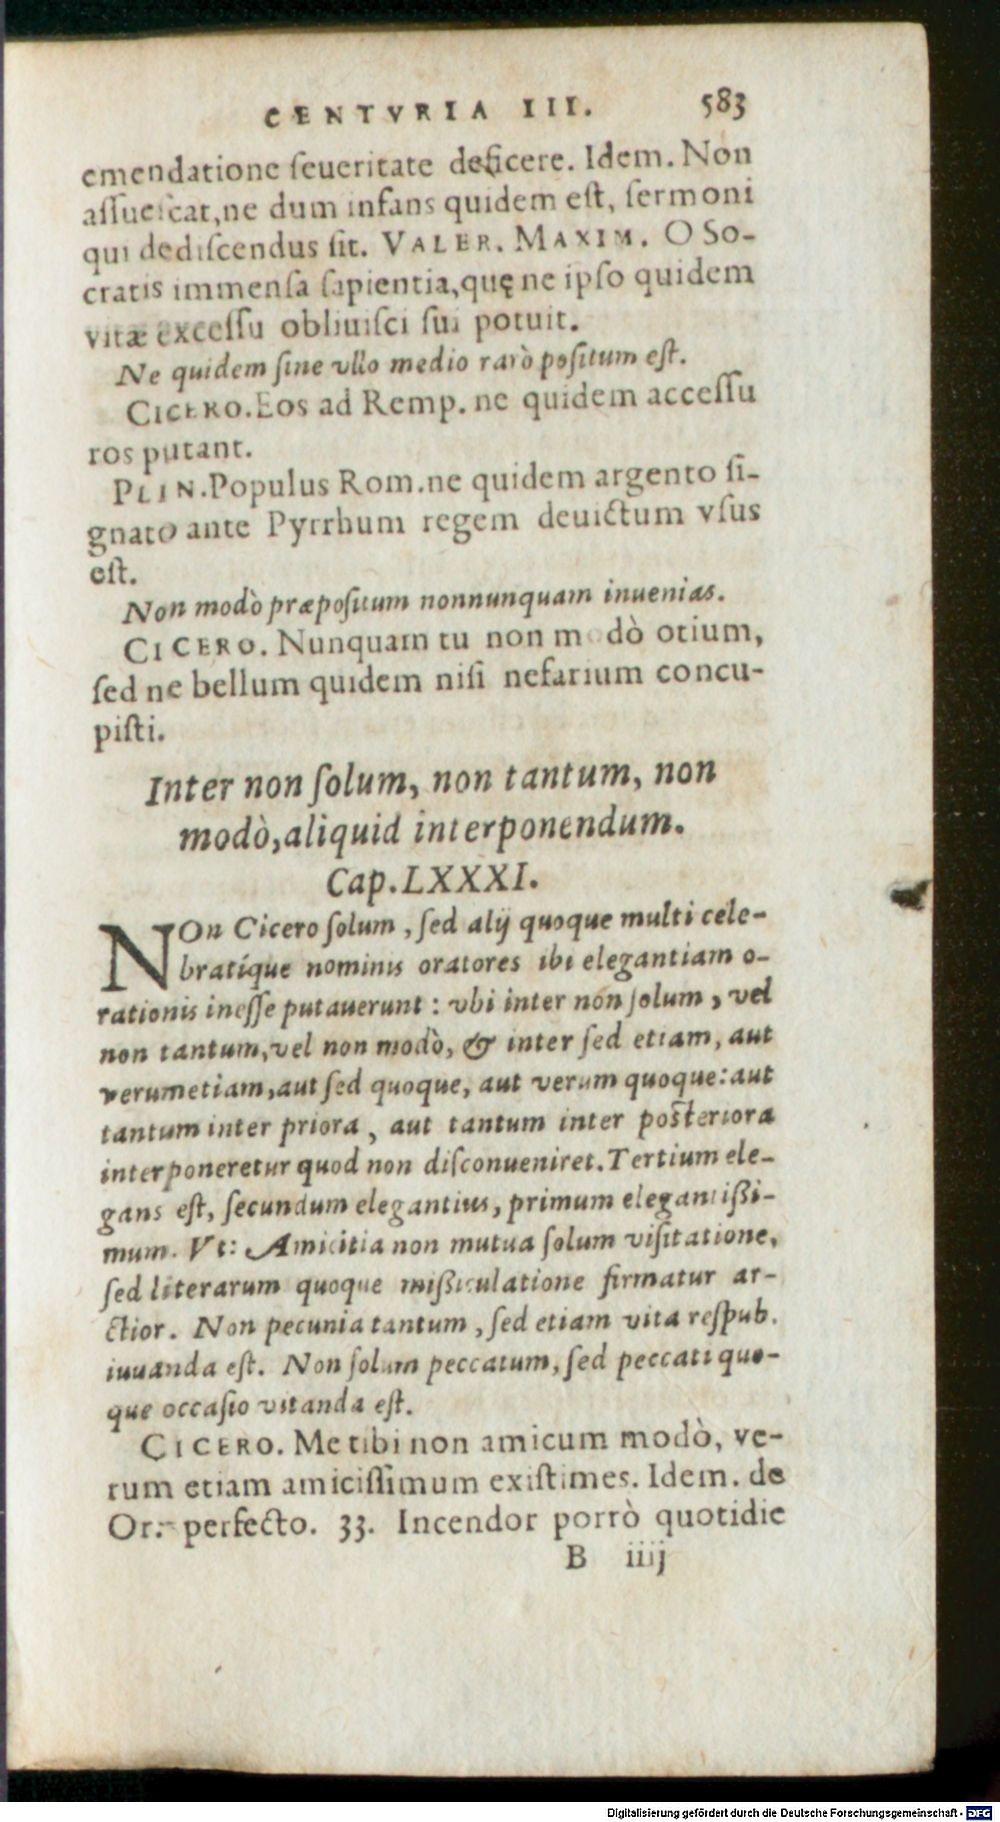 CENTVRIA III. 583
emendatione ſeueritate deficere. Idem. Non
aſſueſcat,ne dum infans quidem eſt, ſermoni
qui dediſcendus ſit. VALER. MAXIM. O So-
cratis immenſa ſapientia,quę ne ipſo quidem
vitæ exceſſu obliuiſci ſui potuit.
Ne quidem ſine vllo medio rarò poſitum eſt.
CICERO.Eos ad Remp. ne quidem acceſſu
ros putant.
PLIN.Populus Rom.ne quidem argento ſi-
gnato ante Pyrrhum regem deuictum vſus
eſt.
Non modò præpoſitum nonnunquam inuenias.
CICERO. Nunquam tu non modò otium,
ſed ne bellum quidem niſi nefarium concu-
piſti.
Inter non ſolum, non tantum, non
modò,aliquid interponendum.
Cap.LXXXI.
NOn Cicero ſolum, ſed alij quoque multi cele-
bratíque nominis oratores ibi elegantiam o-
rationis ineſſe putauerunt: vbi inter non ſolum, vel
non tantum,vel non modò, & inter ſed etiam, aut
verumetiam,aut ſed quoque, aut verum quoque:aut
tantum inter priora, aut tantum inter poſteriora
interponeretur quod non diſconueniret.Tertium ele-
gans eſt, ſecundum elegantius, primum elegantißi-
mum. Vt: Amicitia non mutua ſolum viſitatione,
ſed literarum quoque mißiculatione firmatur ar-
ctior. Non pecunia tantum, ſed etiam vita reſpub.
iuuanda eſt. Non ſolum peccatum, ſed peccati quo-
que occaſio vitanda eſt.
CICERO. Me tibi non amicum modò, ve-
rum etiam amiciſſimum exiſtimes. Idem. de
Or. perfecto. 33. Incendor porrò quotidie
B iiij
Digitalisierung gefördert durch die Deutsche Forschungsgemeinschaft - DFG